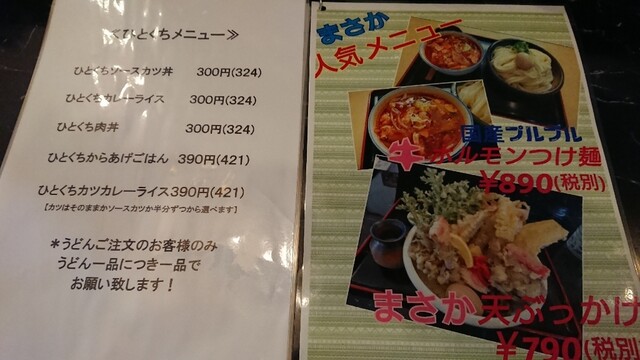 ≪ひとくちメニュー≫
ひとくちソースカツ丼 300円(324)
ひとくちカレーライス 300円(324)
ひとくち肉丼 300円(324)
ひとくちからあげごはん 390円(421)
ひとくちカツカレーライス390円(421)
【カツはそのままかソースカツか半分ずつから選べます】
*うどんご注文のお客様のみ
うどん一品につき一品で
お願い致します!
まさか
人気メニュー
国産プルプル
牛ホルモンつけ麺
¥890(税別)
まさか天ぶっかけ
¥790(税別)